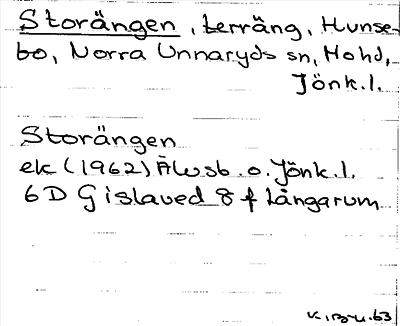 Storängen, terräng, Hunse-
bo, Norra Unnaryds sn, Mohd,
Jönk.l.
Storängen
ek (1962) Älvsb. o. Jönk.l.
6D Gislaved 8 f Långarum